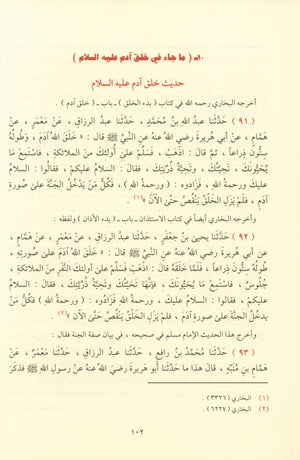 ١٠ـ ( ما جاء في خلق آدم عليه السلام )
حديث خلق آدم عليه السلام
أخرجه البخاري رحمه الله في كتاب ( بدء الخلق ) ـ باب ـ ( خلق آدم ) .
( ٩١ ) حَدَّثَنَا عبدُ اللهِ بنُ مُحَمَّدٍ ، حَدَّثَنَا عبدُ الرزاقِ ، عَنْ مَعْمَرٍ ، عَنْ
هَمَّامٍ ، عَنْ أبي هُريرةَ رضي اللهُ عنهُ عن النَّبِيِّ ﷺ قال : « خَلَقَ اللهُ آدَمَ ، وَطُولُهُ
سِتُّونَ ذِراعاً ، ثمَّ قالَ : اذْهَبْ ، فَسَلِّمْ عَلَى أُولَئِكَ مِنَ الملائكةِ ، فاسْتَمِعْ مَا
يُحَيُّونَكَ ، تَحِيَّتُكَ ، وَتَحِيَّةُ ذُرِّيَّتِكَ ، فقال : السَّلامُ عليكُم ، فقالُوا : السلامُ
عليكَ ورحمةُ اللهِ ، فَزَادُوه : ( ورحمةُ اللهِ ) ، فَكُلُّ مَنْ يَدْخُلُ الجنَّةَ على صُورةِ
آدَمَ ، فَلَمْ يَزَلِ الخَلْقُ يَنْقُصُ حتَّى الآنَ »(١) .
وأخرجه البخاري أيضاً في كتاب الاستئذان ـ باب ـ ( بدء الأذان ) ولفظه :
( ٩٢ ) حَدَّثَنَا يحيىَ بنُ جعفَرٍ ، حَدَّثَنَا عبدُ الرزاقِ ، عَنْ مَعْمَرٍ ، عَنْ هَمَّامٍ ،
عن أبي هريرة رضي اللهُ عنهُ عنِ النَّبِيِّ ﷺ قالَ : « خَلَقَ اللهُ آدَمَ عَلَى صُورَتِهِ ،
طُولُهُ سِتُّونَ ذِراعاً ، فَلَمَّا خَلَقَهُ قالَ : اذْهَبْ فَسَلِّمْ عَلى أُولَئِكَ النَّفَرِ مِنَ الملائكةِ
جُلُوسٌ ، فَاسْتَمِعْ مَا يُحَيُّونَكَ ، فَإِنَّهَا تَحِيَّتُكَ وَتَحِيَّةُ ذُرِّيَّتِكَ ، فقال : السَّلامُ
عليكم ، فقالوا : السلامُ عليكَ ، ورحمةُ اللهِ ، فَزَادُوهُ : ( ورحمةُ اللهِ ) فَكُلُّ مَنْ
يدخُلُ الجنةَ على صُورَةِ آدَمَ ، فَلَمْ يَزَلِ الخَلْقُ يَنْقُصُ حَتَّى الآنَ »(٢) .
وأخرج هذا الحديث الإمام مسلم في صحيحه ، في بيان صفة الجنة فقال :
( ٩٣ ) حَدَّثَنَا مُحَمَّدُ بنُ رافِعٍ ، حَدَّثَنَا عبدُ الرزاقِ ، حَدَّثَنَا مَعْمَرٌ ، عَنْ
هَمَّامِ بْنِ مُنَبِّهٍ ، قَالَ هذا ما حَدَّثَنَا بِهِ أبو هُرَيرةَ رَضِيَ اللهُ عنهُ عنْ رسولِ اللهِ ﷺ فذكرَ
(١) البخاري ( ٣٣٢٦ ) .
(٢) البخاري ( ٦٢٢٧ ) .
١٠٢